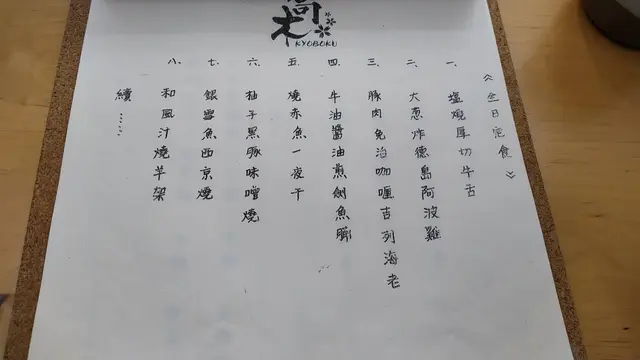 喬木
KYOBOKU
《全日定食》
一、塩焼厚切牛舌
二、大葱炸德島阿波雞
三、豚肉免治咖喱吉列海老
四、牛油醬油煎劍魚腩
五、燒赤魚一夜干
六、柚子黑豚味噌燒
七、銀鱈魚西京燒
八、和風汁燒羊架
續……